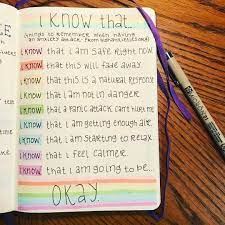 I KNOW that...
(things to remember when having
an anxiety attack. from
I KNOW that I am safe right now.
I KNOW that this will fade away.
I KNOW that this is a natural response.
I KNOW that I am not in danger.
I KNOW that a panic attack can't hurt me.
I KNOW that I am getting enough air.
I KNOW that I am starting to relax.
I KNOW that I feel calmer.
I KNOW that I am going to be...
OKAY.